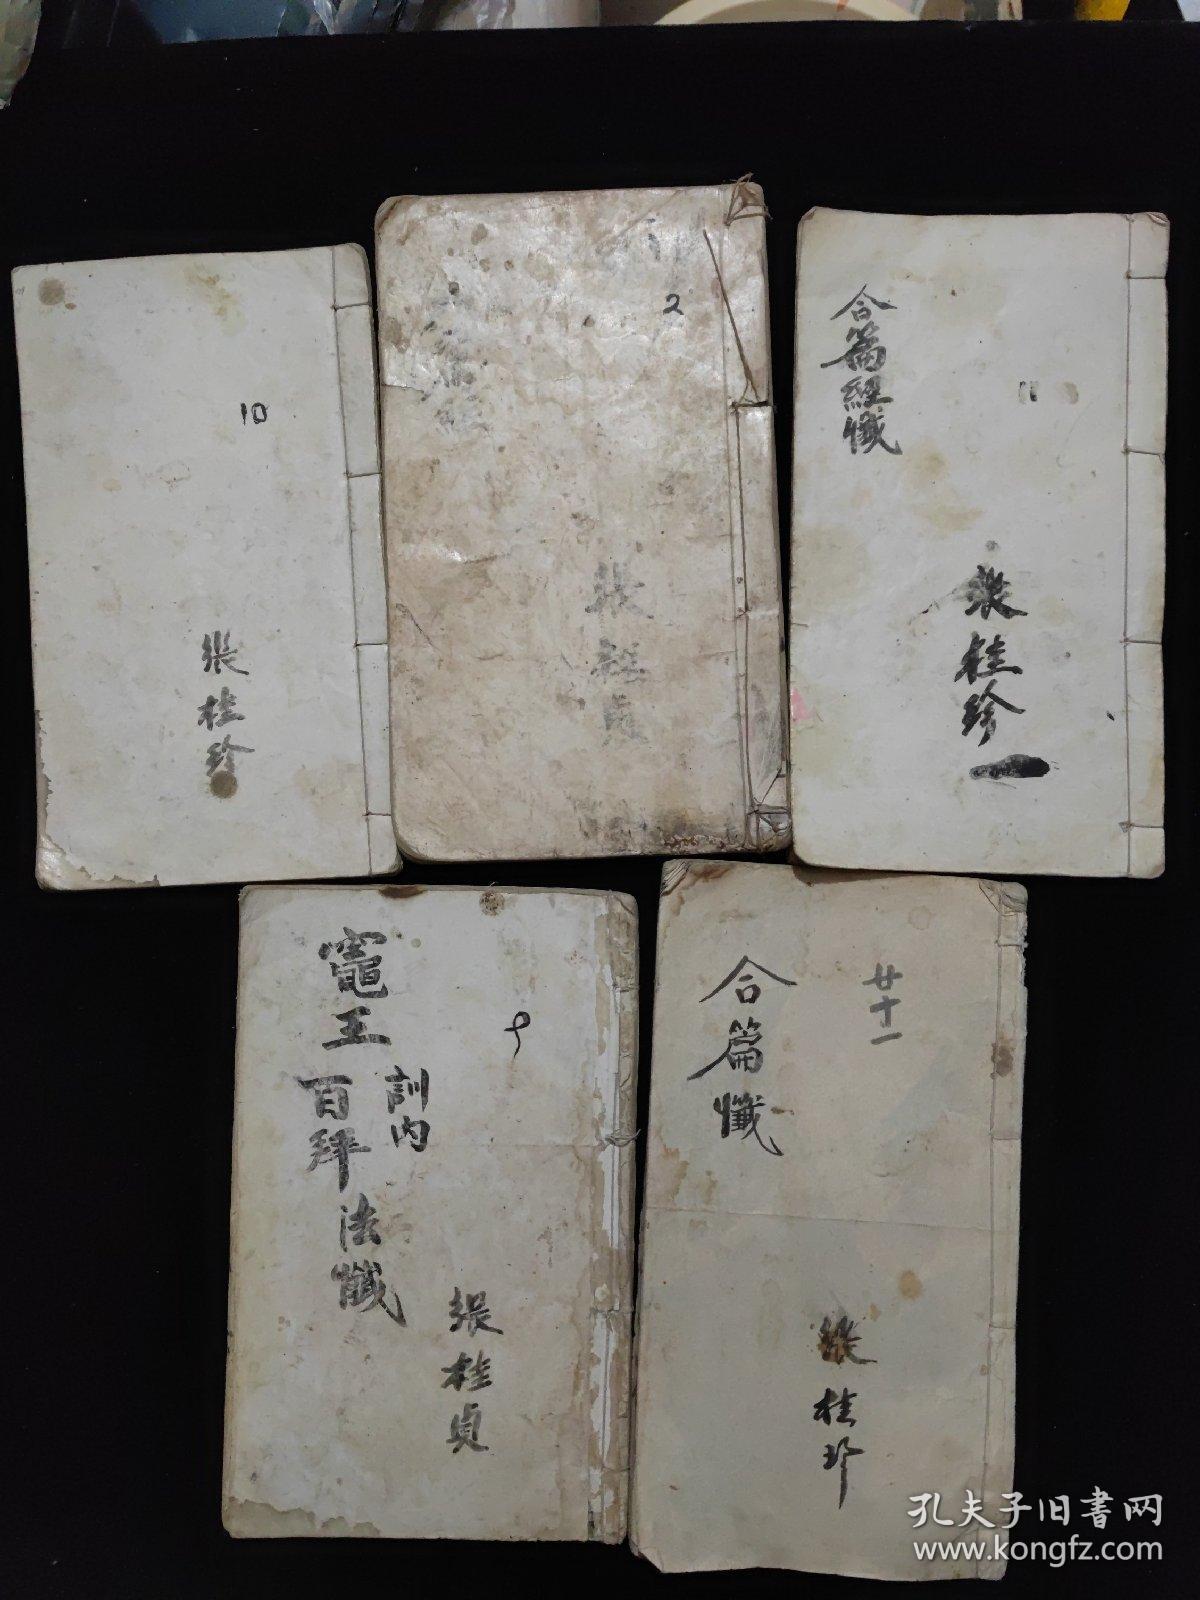 10
張桂珍
2
張桂貞
合篇經懺
11
張桂珍
竈王
訓内
百拜法懺
9
張桂貞
合篇懺
廿十一
張桂珍
孔夫子旧書网
www.kongfz.com